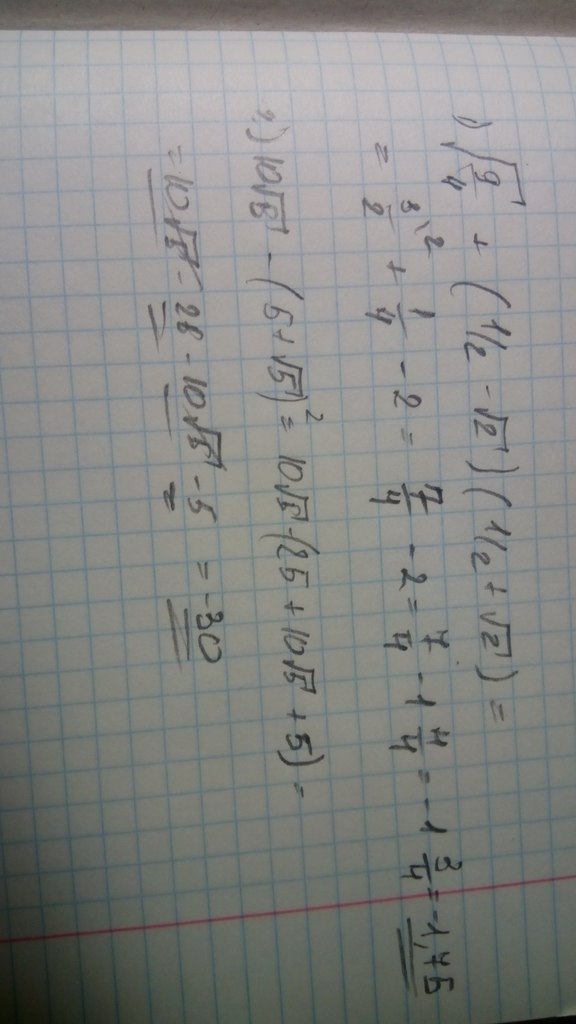 1) √9/4 + (1/2 - √2)(1/2 + √2) =
= 3\2/2 + 1/4 - 2 = 7/4 - 2 = 7/4 - 1 4/4 = -1 3/4 = -1,75
2) 10√5 - (5 + √5)² = 10√5 - (25 + 10√5 + 5) =
= 10√5 - 25 - 10√5 - 5 = -30